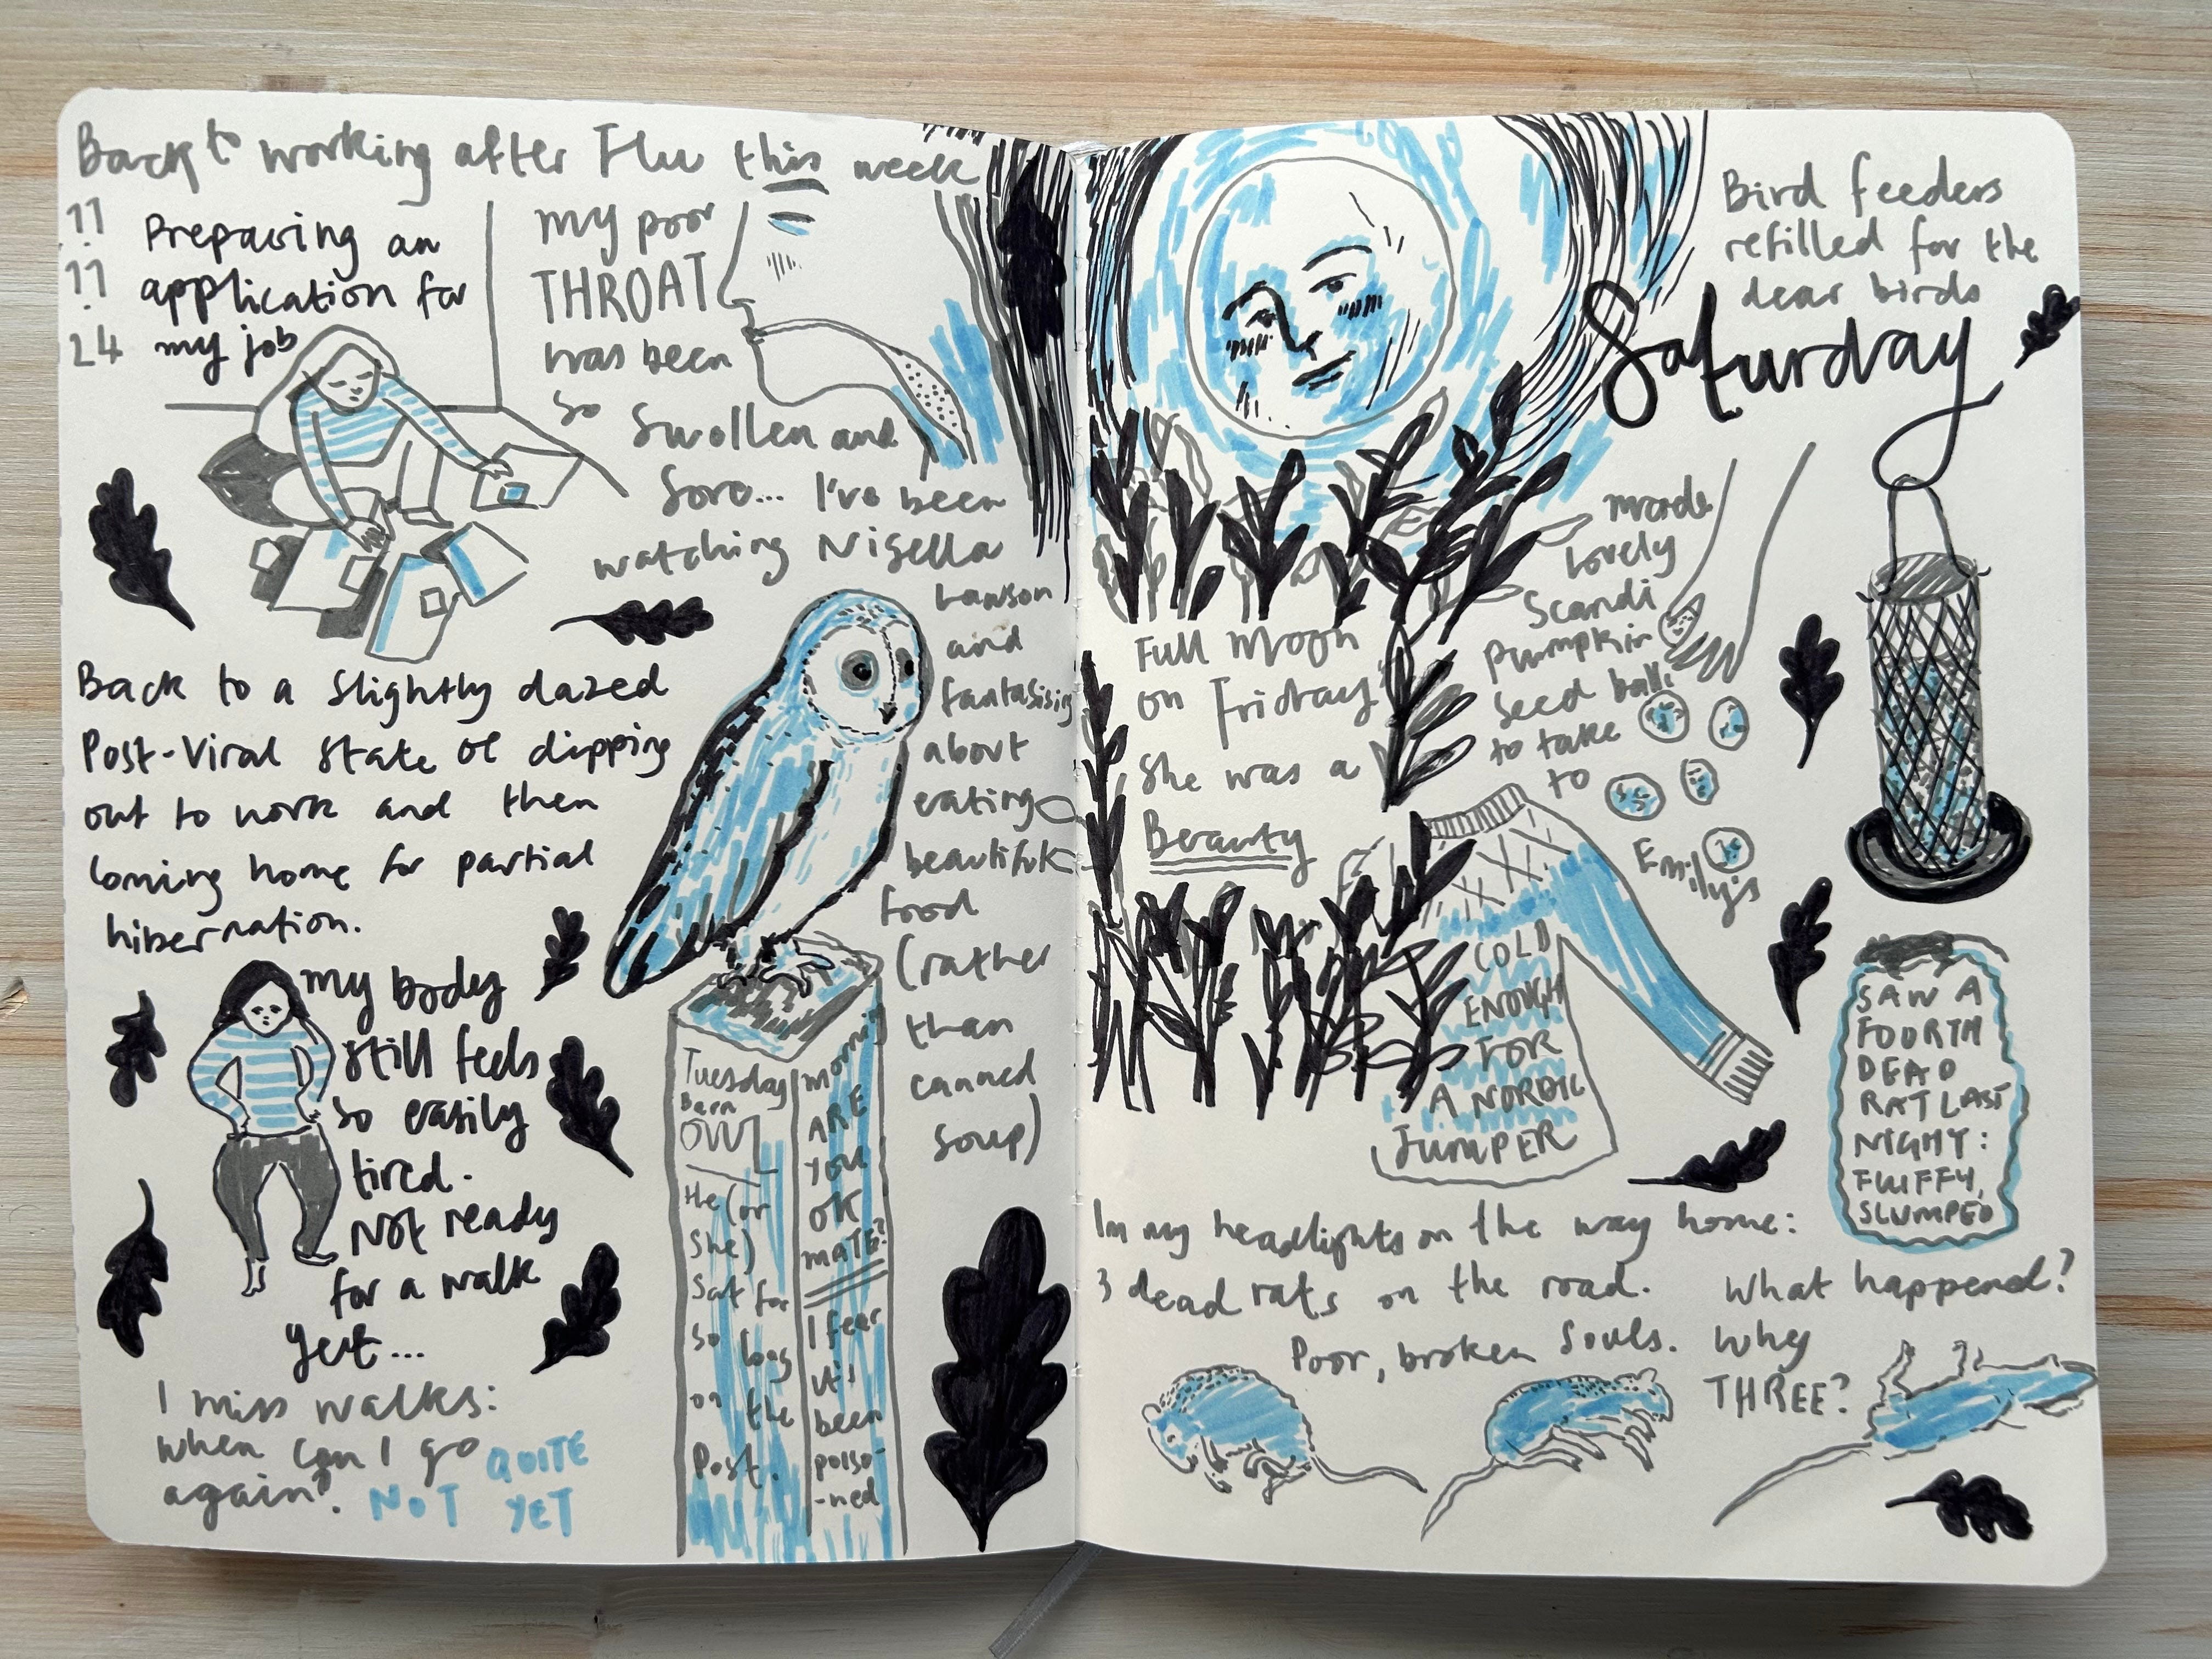 Back to working after Flu this week
11
11
24
Preparing an
application for
my job
my poor
THROAT
has been
so
swollen and
sore... I've been
watching Nigella
Lawson
and
fantasising
about
eating
beautiful
food
(rather
than
canned
soup)
Back to a slightly dazed
Post-Viral state of dipping
out to work and then
coming home for partial
hibernation.
my body
still feels
so easily
tired.
Not ready
for a walk
yet...
I miss walks:
when can I go
again?
NOT QUITE
YET
Tuesday
Barn
OWL
He (or
She)
Sat for
so long
on the
Post.
morning
ARE
YOU
OK
MATE?
I fear
it's
been
poiso-
-ned
Full Moon
on Friday
She was a
Beauty
Bird feeders
refilled for the
dear birds
Saturday
made
lovely
Scandi
pumpkin
seed balls
to take
to
Emily's
COLD
ENOUGH
FOR
A NORDIC
JUMPER
SAW A
FOURTH
DEAD
RAT LAST
NIGHT:
FLUFFY,
SLUMPED
In my headlights on the way home:
3 dead rats on the road.
Poor, broken souls.
What happened?
Why
THREE?